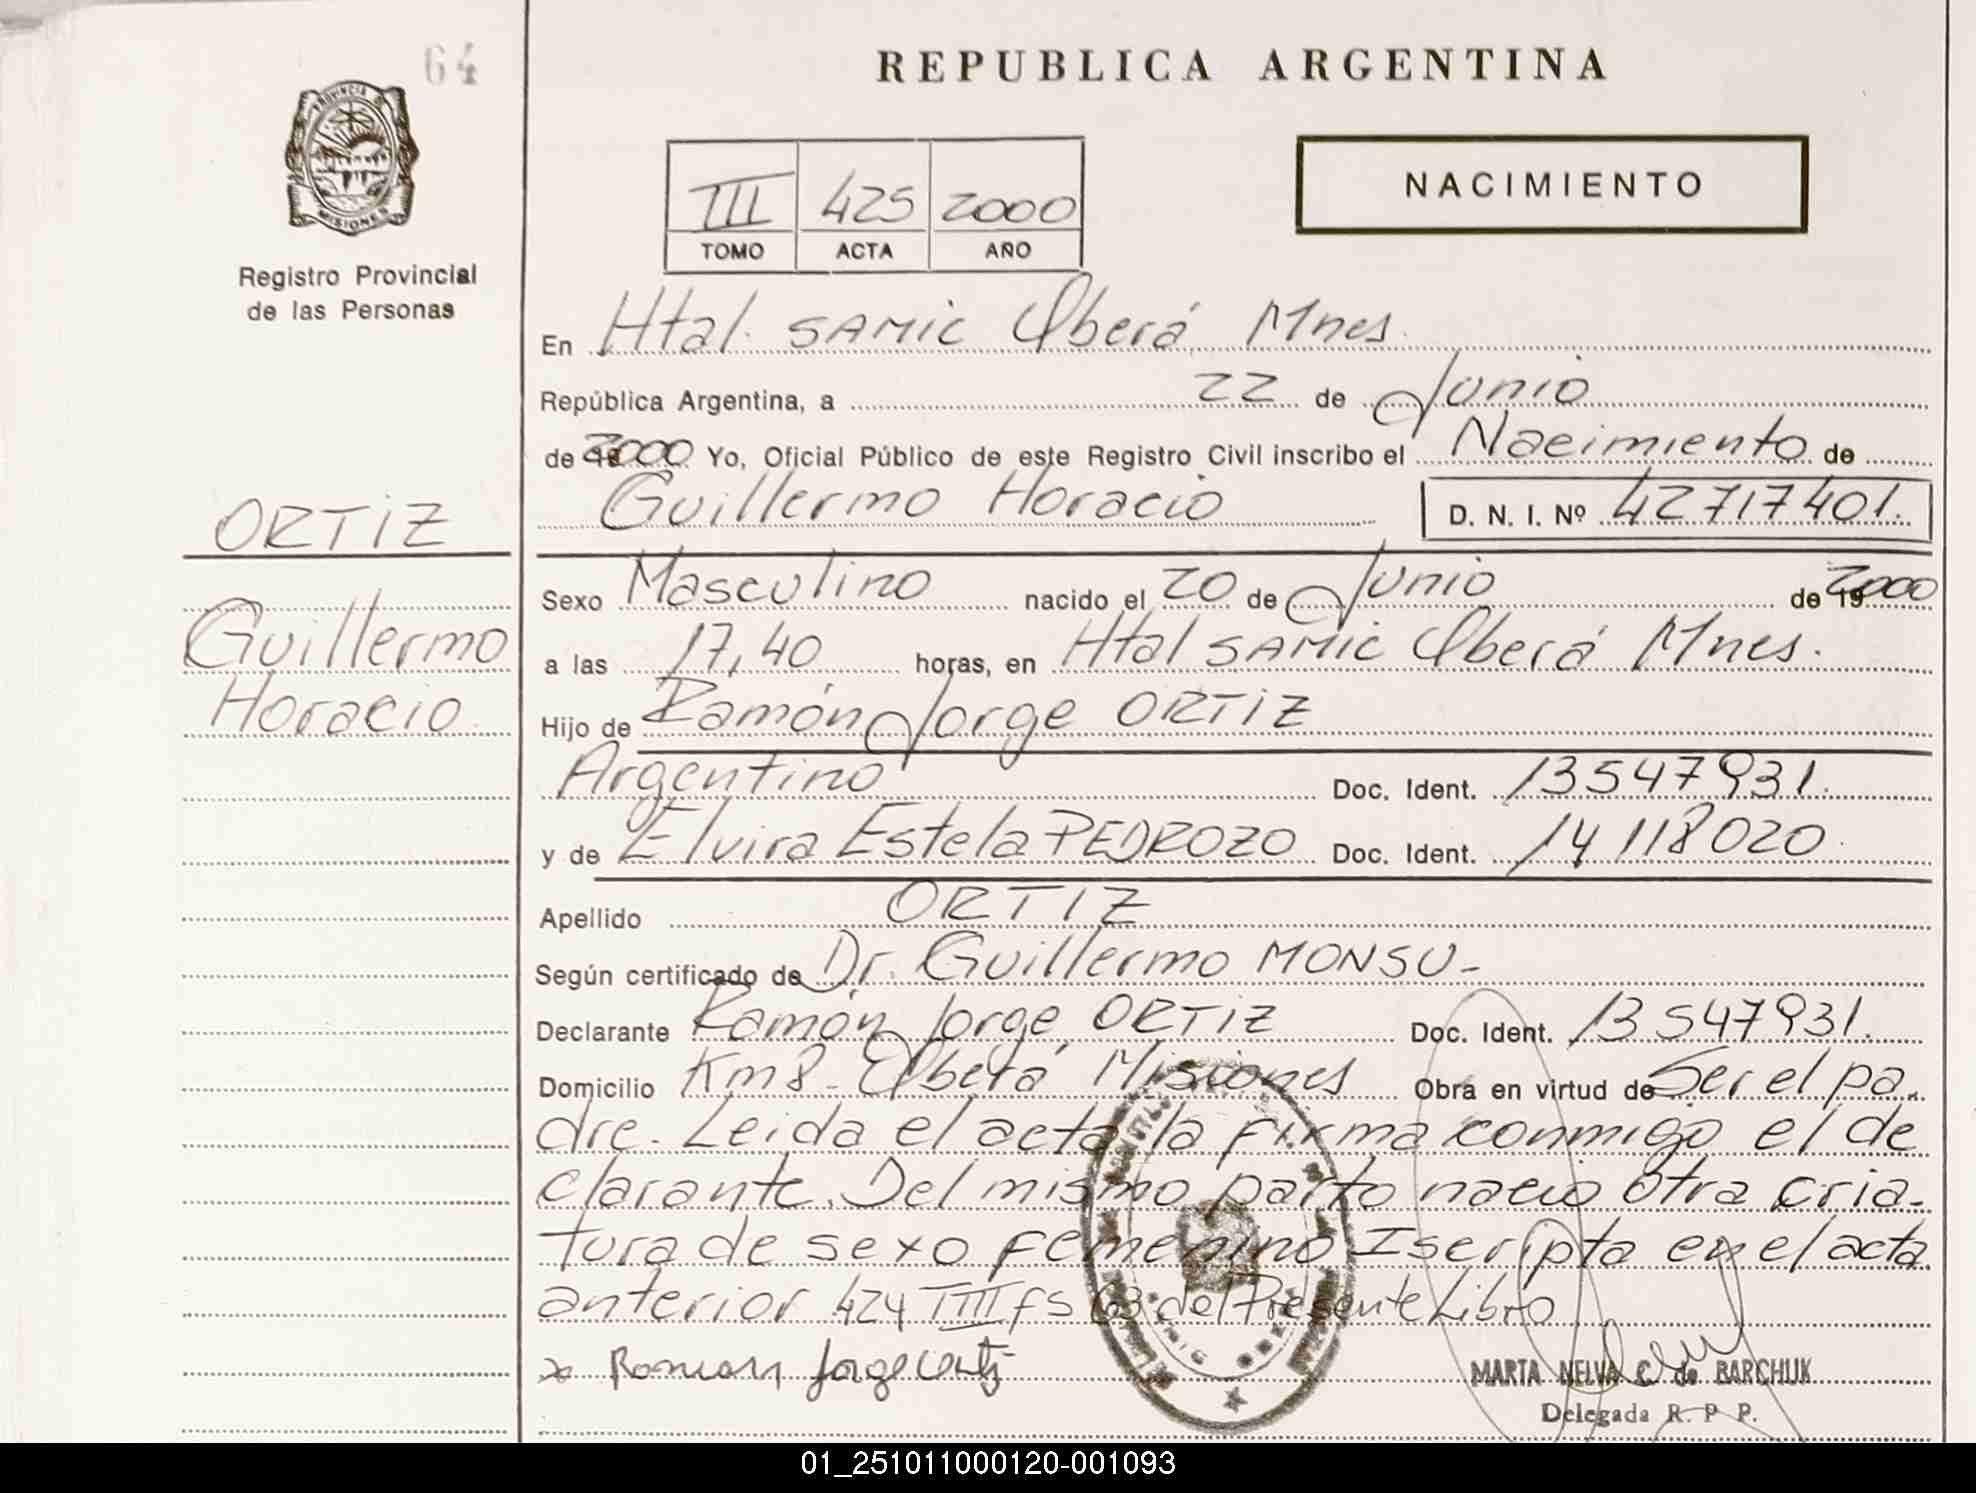 64
REPUBLICA ARGENTINA
PROVINCIA DE
MISIONES
Registro Provincial
de las Personas
III 425 2000
TOMO ACTA AÑO
NACIMIENTO
En Htal. SAMIC Oberá Mnes.
República Argentina, a 22 de Junio
de 2000 Yo, Oficial Público de este Registro Civil inscribo el Nacimiento de
Guillermo Horacio D. N. I. Nº 42717401.
ORTIZ
Guillermo
Horacio
Sexo Masculino nacido el 20 de Junio de 2000
a las 17,40 horas, en Htal SAMIC Oberá Mnes.
Hijo de Ramón Jorge ORTIZ
Argentino Doc. Ident. 13547931.
y de Elvira Estela PEDROZO Doc. Ident. 14118020.
Apellido ORTIZ
Según certificado de Dr. Guillermo MONSU-
Declarante Ramón Jorge ORTIZ Doc. Ident. 13547931.
Domicilio Km 8- Oberá Misiones Obra en virtud de Ser el pa-
dre. Leida el acta la firma conmigo el de
clarante. Del mismo parto nacio otra cria-
tura de sexo femenino Iscripta en el acta
anterior 424 TIII fs 63 del Presente Libro
x Ramon Jorge Ortiz
MARTA NELVA C. de BARCHUK
Delegada R. P P.
01_251011000120-001093